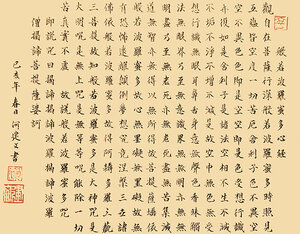 般若波羅蜜多心經
觀自在菩薩行深般若波羅蜜多時照見
五蘊皆空度一切苦厄舍利子色不異空
空不異色色即是空空即是色受想行識
亦復如是舍利子是諸法空相不生不滅
不垢不淨不增不減是故空中無色無受
想行識無眼耳鼻舌身意無色聲香味觸
法無眼界乃至無意識界無無明亦無無
明盡乃至無老死亦無老死盡無苦集滅
道無智亦無得以無所得故菩提薩埵依
般若波羅蜜多故心無罣礙無罣礙故無
有恐怖遠離顛倒夢想究竟涅槃三世諸
佛依般若波羅蜜多故得阿耨多羅三藐
三菩提故知般若波羅蜜多是大神咒是
大明咒是無上咒是無等等咒能除一切
苦真實不虛故說般若波羅蜜多咒
即說咒曰揭諦揭諦波羅揭諦波羅
僧揭諦菩提薩婆訶
己亥年春日何文書